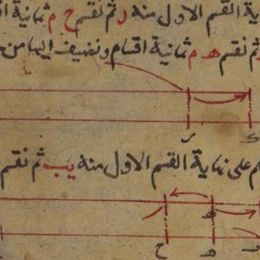 ية القسم الاول منه ر ثم نقسم ح م ثمانية ا
ثم نقسم ه م ثمانية اقسام ونضيف اليها من ح
م على نهاية القسم الاول منه يب ثم نقسم
ه
ح ه